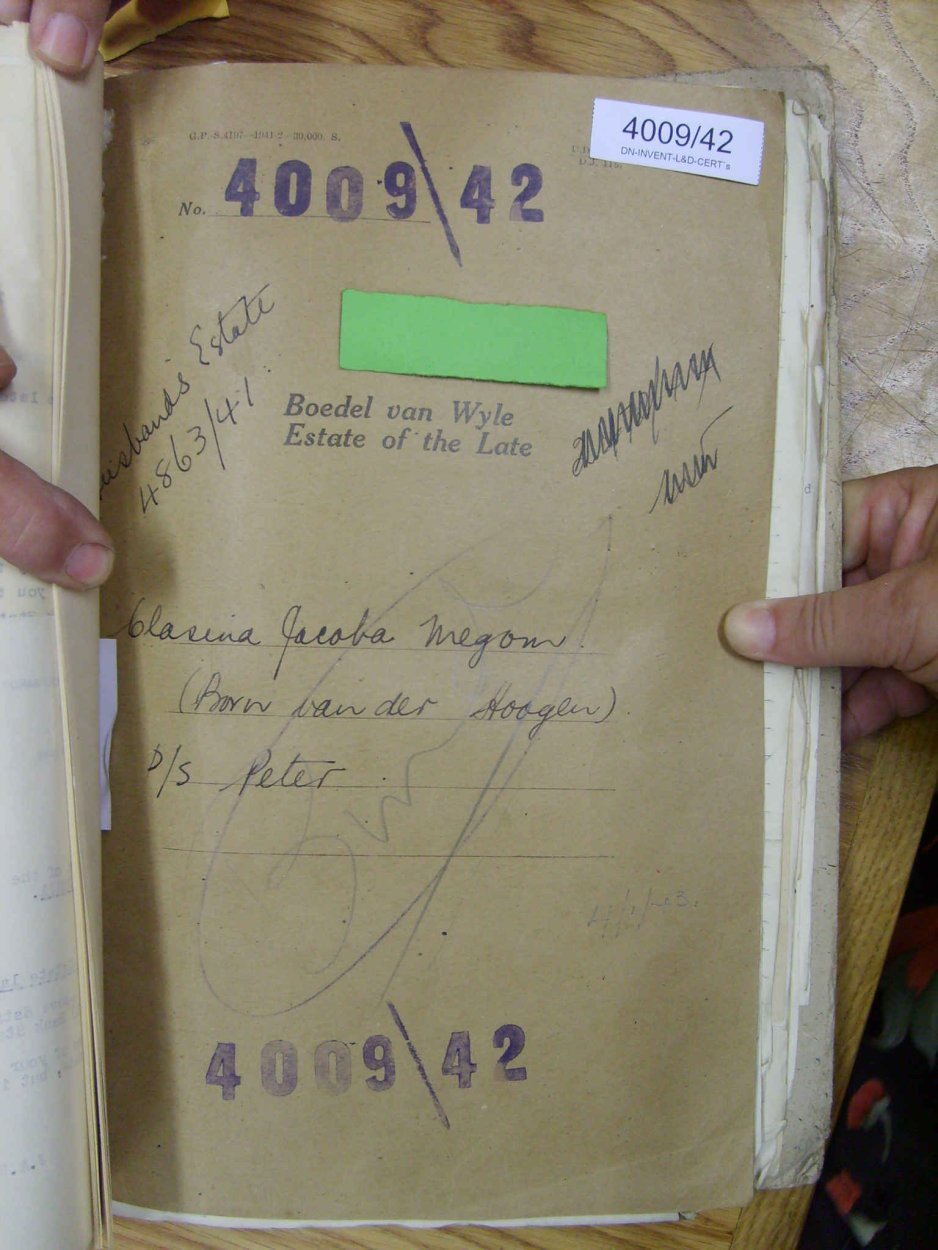 G.P.-S.4197-1941-2-30,000. S.
4009/42
DN-INVENT-L&D-CERT's
No. 4009\42
Husband's Estate
4863/41
Boedel van Wyle
Estate of the Late
Clasina Jacoba Megom
(Born van der Hoogen)
D/S Peter
4/1/43.
4009\42